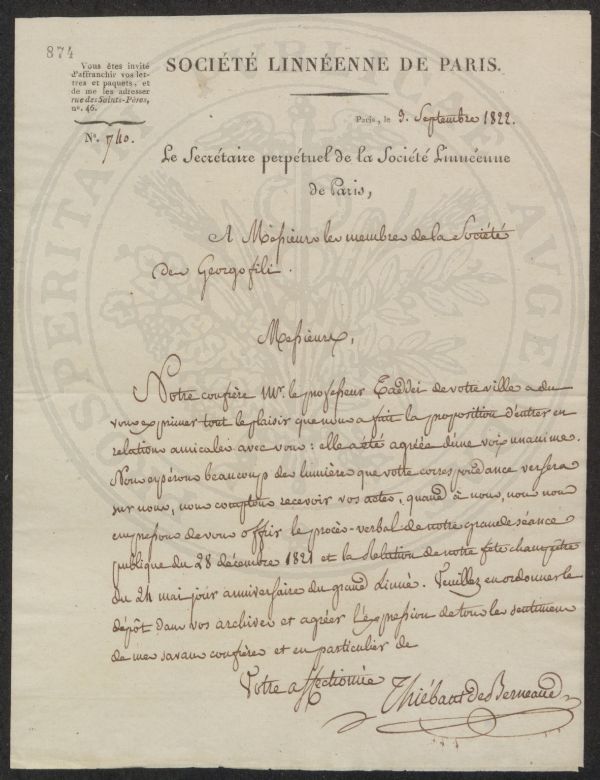 874
Vous êtes invité
d'affranchir vos let-
tres et paquets, et
de me les adresser
rue des Saints-Pères,
n°. 46.
SOCIÉTÉ LINNÉENNE DE PARIS.
Paris, le 9. Septembre 1822.
N°. 740.
Le Secrétaire perpétuel de la Société Linnéenne
de Paris,
A Messieurs les membres de la Société
des Georgofili.
Messieurs,
Notre confrère Mr. le professeur Taddei de votre ville a du
vous exprimer tout le plaisir que nous a fait la proposition d'entrer en
relations amicales avec vous : elle a été agréée d'une voix unanime.
Nous espérons beaucoup de lumière que votre correspondance versera
sur nous, nous comptons recevoir vos actes, quand à nous, nous nous
empressons de vous offrir le procès-verbal de notre grande séance
publique du 28 décembre 1821 et la Relation de notre fête champêtre
du 24 mai jour anniversaire du grand Linné. Veuillez en ordonner le
dépôt dans vos archives et agréer l'expression de tous les sentimens
de mes savans confrères et en particulier de
Votre affectionné
Thiébaut de Berneaud
PROSPERITATI PUBLICAE AUGENDAE